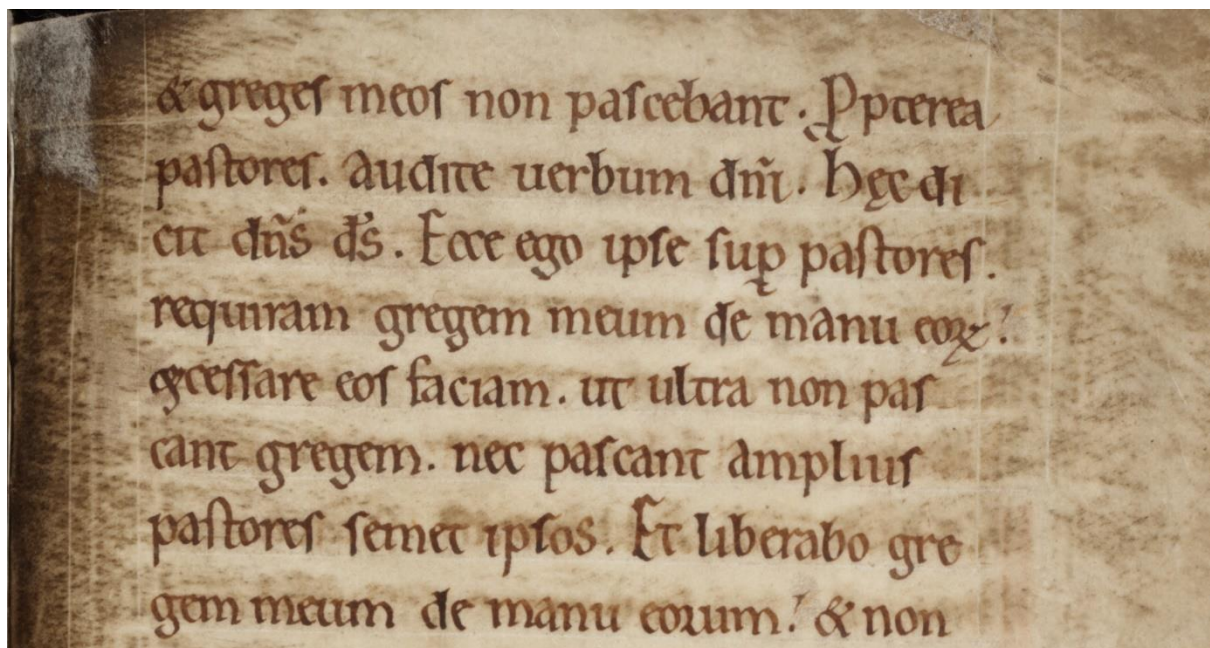 & greges meos non pascebant. Ꝓpterea
pastores. audite uerbum dñi. hęc di
cit dñs d̄s. Ecce ego ipse suꝑ pastores.
requiram gregem meum de manu eoꝝ.
& cessare eos faciam. ut ultra non pas
cant gregem. nec pascant amplius
pastores semet ipsos. Et liberabo gre
gem meum de manu eorum. & non